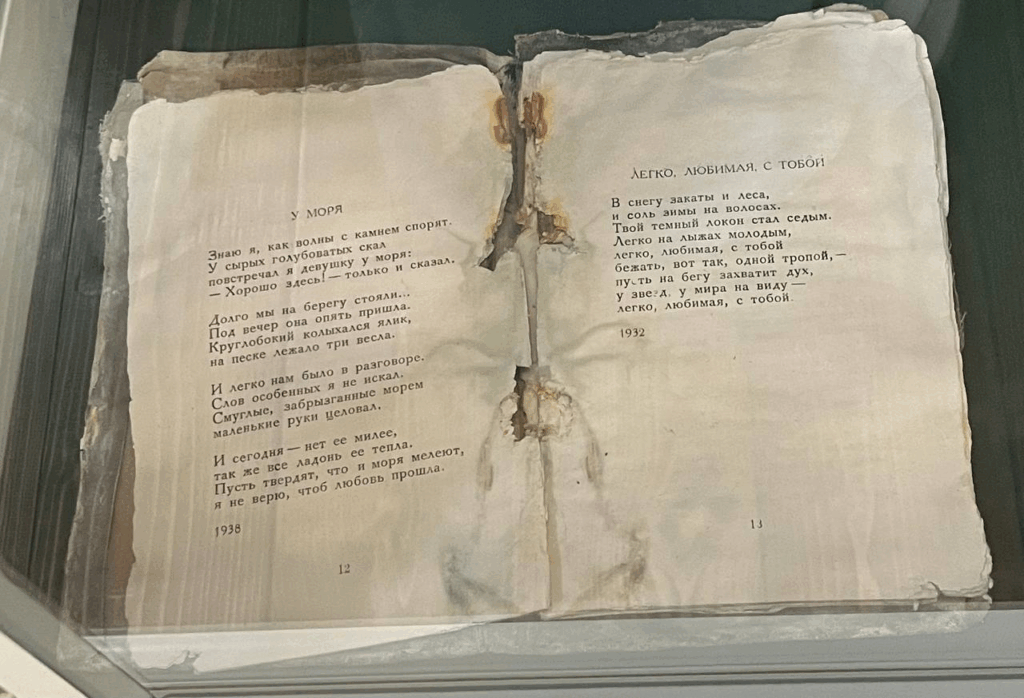 У МОРЯ
Знаю я, как волны с камнем спорят.
У сырых голубоватых скал
повстречал я девушку у моря:
— Хорошо здесь! — только и сказал.
Долго мы на берегу стояли...
Под вечер она опять пришла.
Круглобокий колыхался ялик,
на песке лежало три весла.
И легко нам было в разговоре.
Слов особенных я не искал.
Смуглые, забрызганные морем
маленькие руки целовал.
И сегодня — нет ее милее,
так же все ладонь ее тепла.
Пусть твердят, что и моря мелеют,
я не верю, чтоб любовь прошла.
1938
12
ЛЕГКО, ЛЮБИМАЯ, С ТОБОЙ
В снегу закаты и леса,
и соль зимы на волосах.
Твой темный локон стал седым.
Легко на лыжах молодым,
легко, любимая, с тобой
бежать, вот так, одной тропой, —
пусть на бегу захватит дух,
у звезд, у мира на виду —
легко, любимая, с тобой.
1932
13